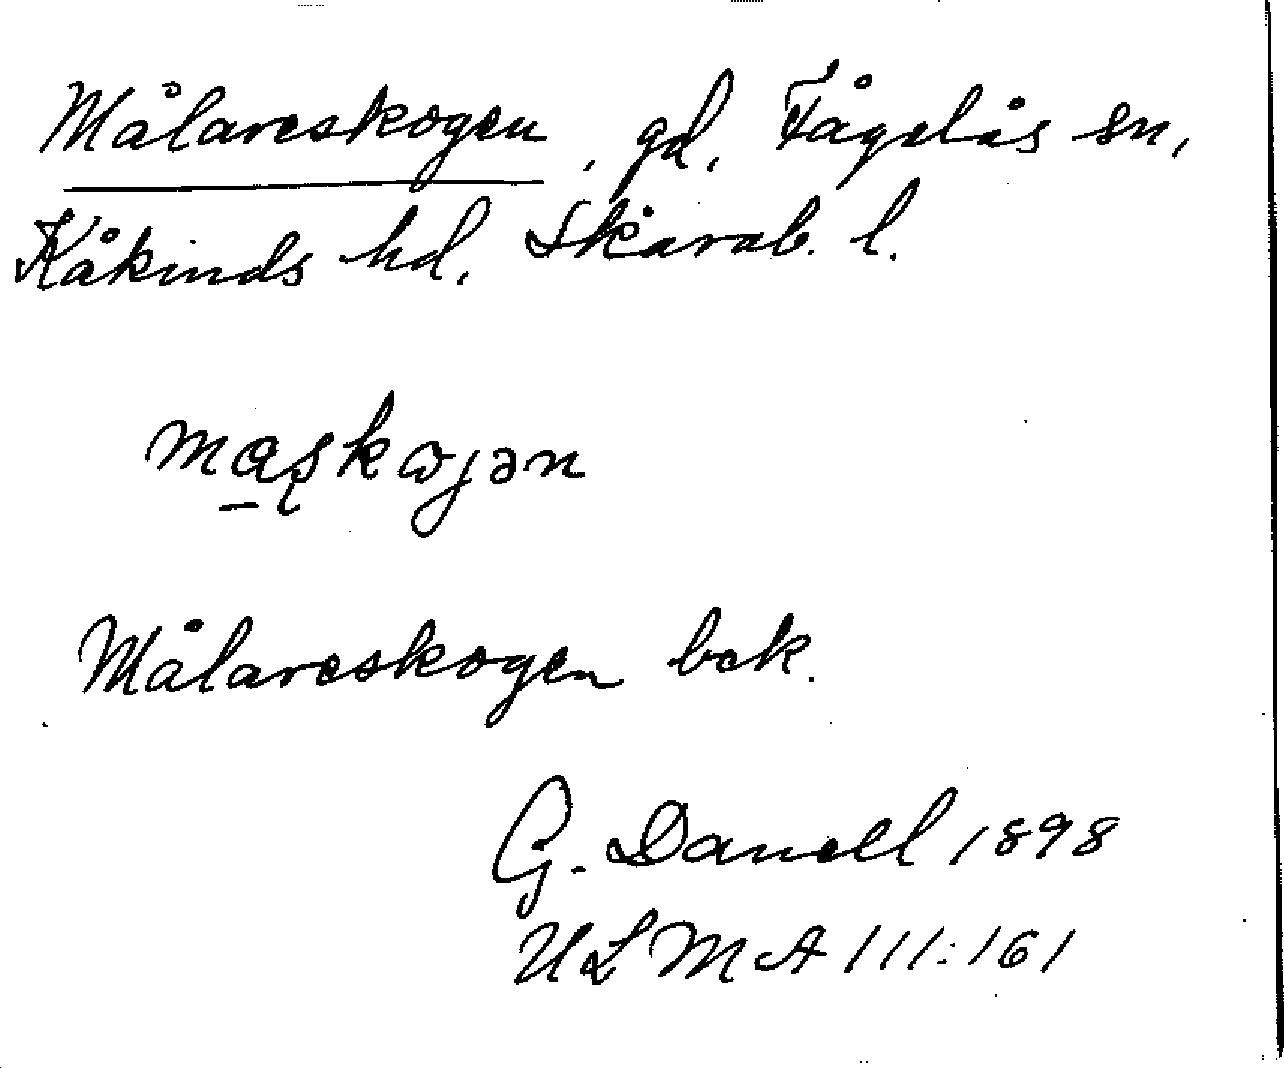 Målareskogen, gd, Fågelås sn,
Kåkinds hd. Skarab. l.
maʂkωjən
Målareskogen bek.
G. Danell 1898
ULMA 111:161